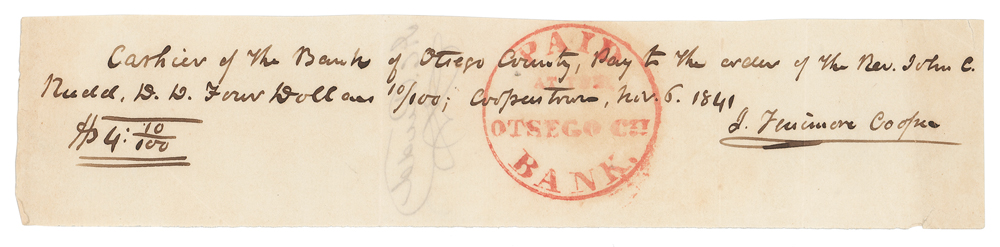 Cashier of the Bank of Otsego County, Pay to the order of the Rev. John C.
Rudd, D. D. Four Dollars 10/100; Cooperstown, Nov. 6. 1841
$4: 10/100
J. Fenimore Cooper
PAID
AT THE
OTSEGO Cty
BANK.